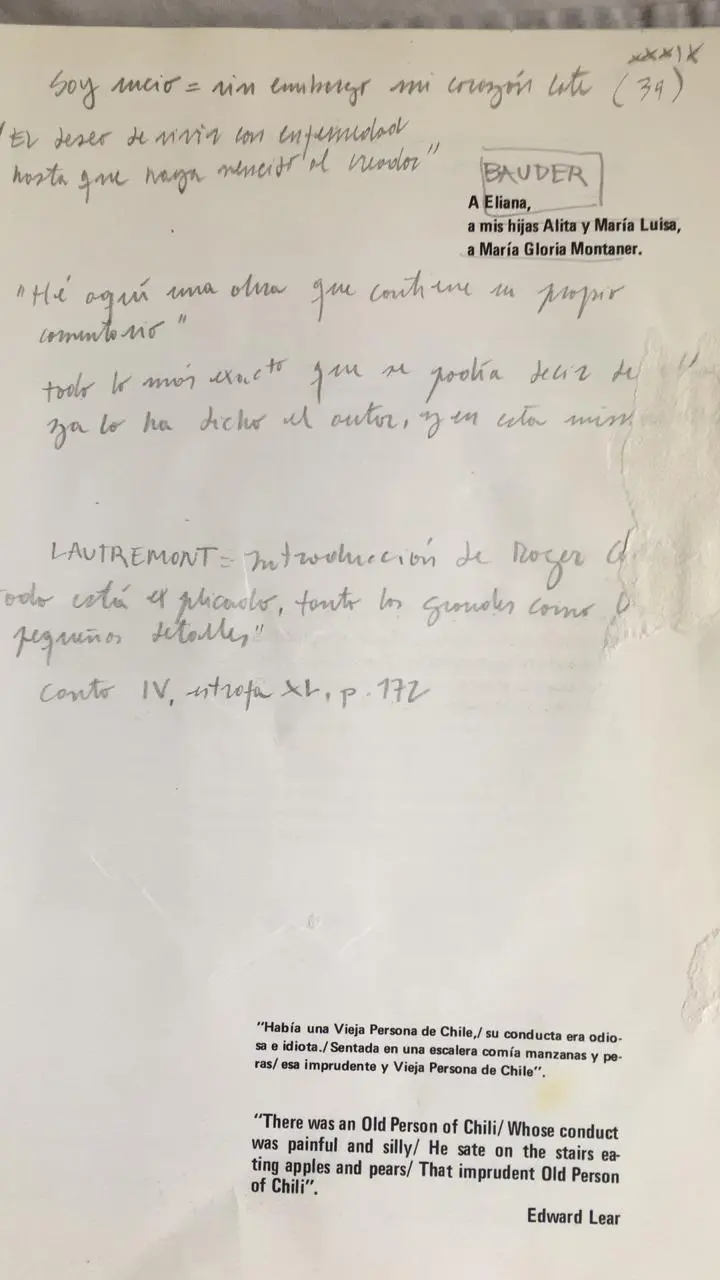 XXXIX
Soy sucio = sin embargo mi corazón late (39)
"El deseo de vivir con enfermedad
hasta que haya vencido al creador"
BAUDER
A Eliana,
a mis hijas Alita y María Luisa,
a María Gloria Montaner.
"Hé aquí una obra que contiene su propio
comentario"
todo lo más exacto que se podía decir de
ya lo ha dicho el autor, y en esta mism
LAUTREMONT = introducción de Roger C
odo está explicado, tanto los grandes como
pequeños detalles"
Canto IV, estrofa XL, p. 172
"Había una Vieja Persona de Chile,/ su conducta era odio-
sa e idiota./ Sentada en una escalera comía manzanas y pe-
ras/ esa imprudente y Vieja Persona de Chile".
"There was an Old Person of Chili/ Whose conduct
was painful and silly/ He sate on the stairs ea-
ting apples and pears/ That imprudent Old Person
of Chili".
Edward Lear